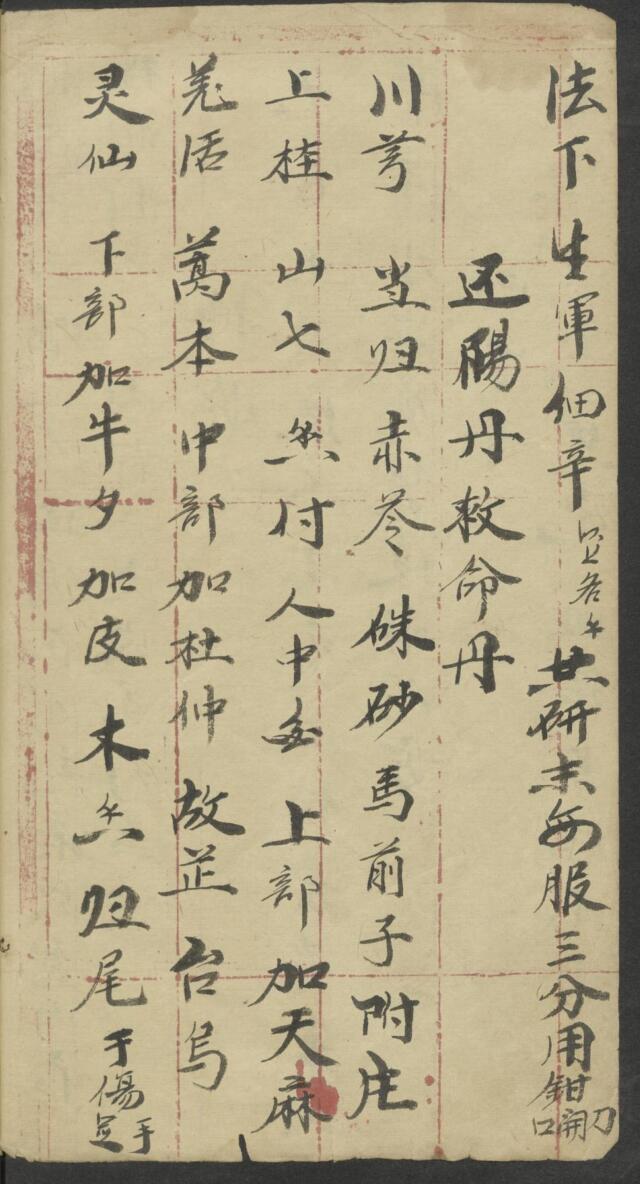 法下生軍细辛 各 共研末每服三分用鉗開口
还陽丹救命丹
川芎 当归赤苓 硃砂馬前子附庄
上桂 山七 然付 人中 上部加天麻
羌活 藁本 中部加杜仲 故芷 台烏
灵仙 下部加牛夕加皮 木 归尾 手傷